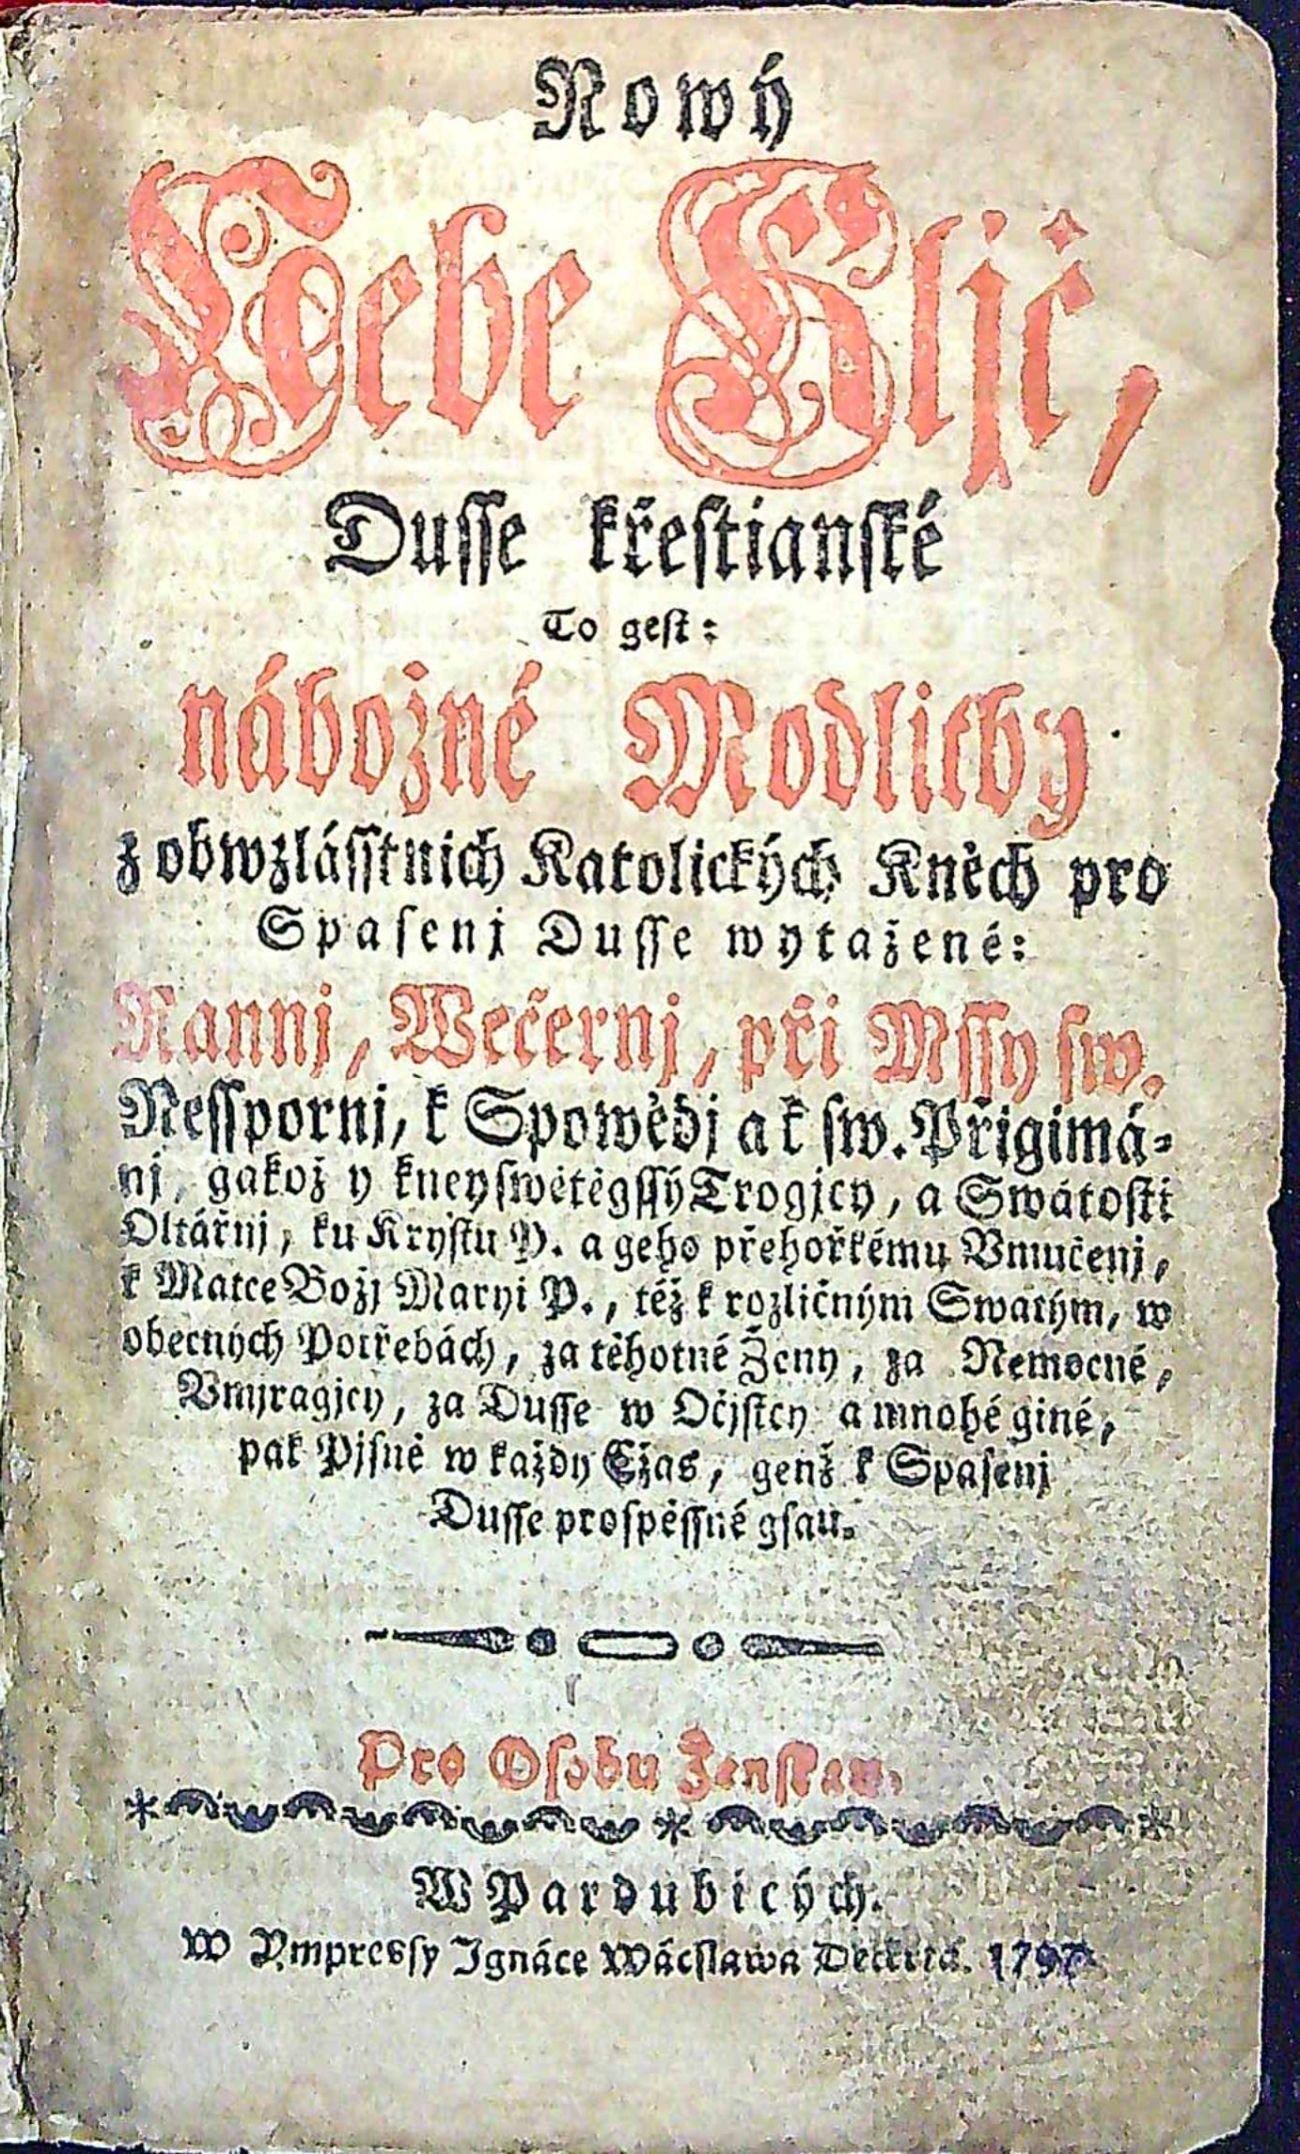 Nowý
Nebe Kljč,
Dusse křestianské
To gest:
nábožné Modlitby
z obwzlásstnich Katolických Kněch pro
Spasenj Dusse wytažené:
Rannj, Wečernj, při Mssy sw.
Nessporni, k Spowědj a k sw. Přigimá-
nj, gakož y kneyswětěgssý Trogjcy, a Swátosti
Oltářnj, ku Krystu P. a geho přehořkému Vmučenj,
k Matce Božj Maryi P., též k rozličným Swatým, w
obecných Potřebách, za těhotné Ženy, za Nemocné,
Vmjragjcy, za Dusse w Očjstcy a mnohé giné,
pak Pjsně w každy Cžas, genž k Spasenj
Dusse prospěssné gsau.
Pro Osobu Ženskau.
W Pardubicých.
W Ympressy Ignáce Wácslawa 1797